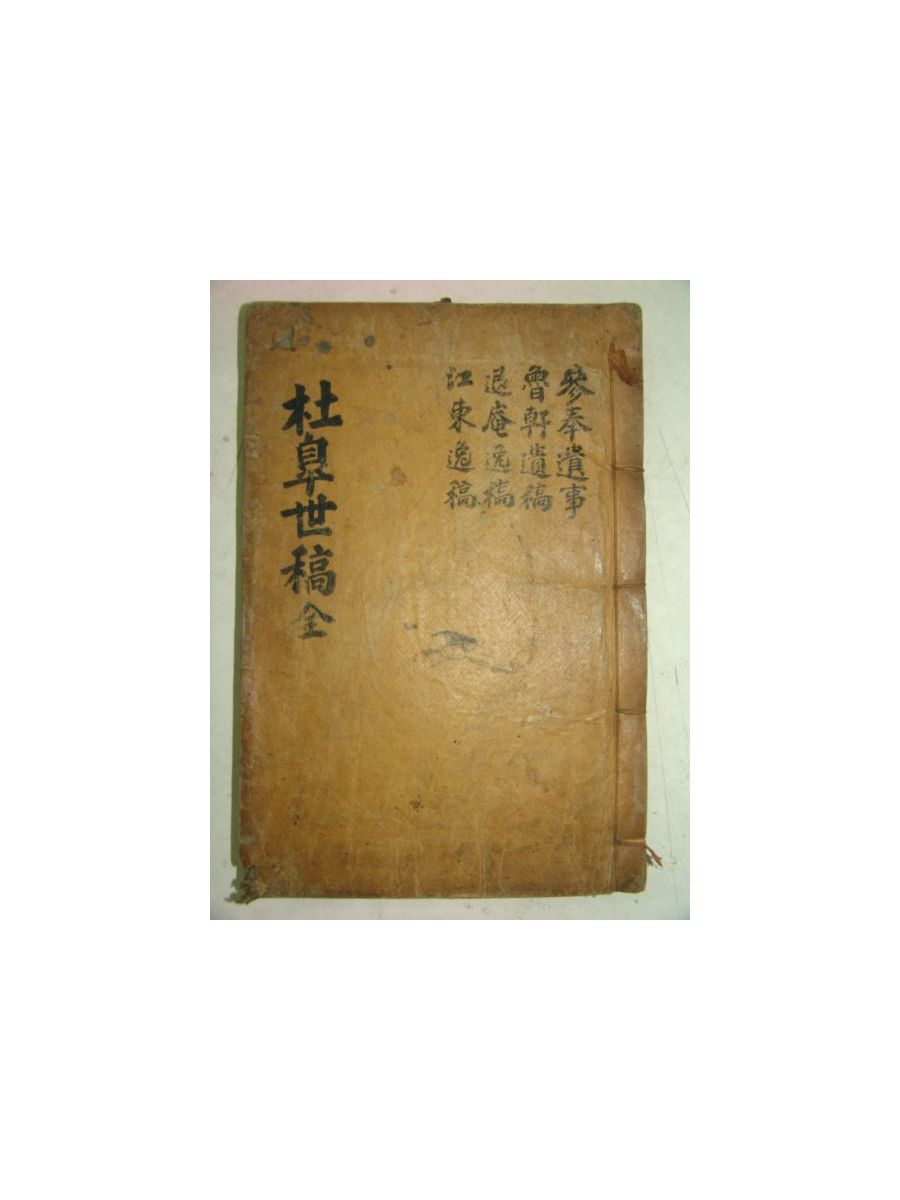 參奉遺事
魯軒遺稿
退庵逸稿
江東逸稿
杜皐世稿 全